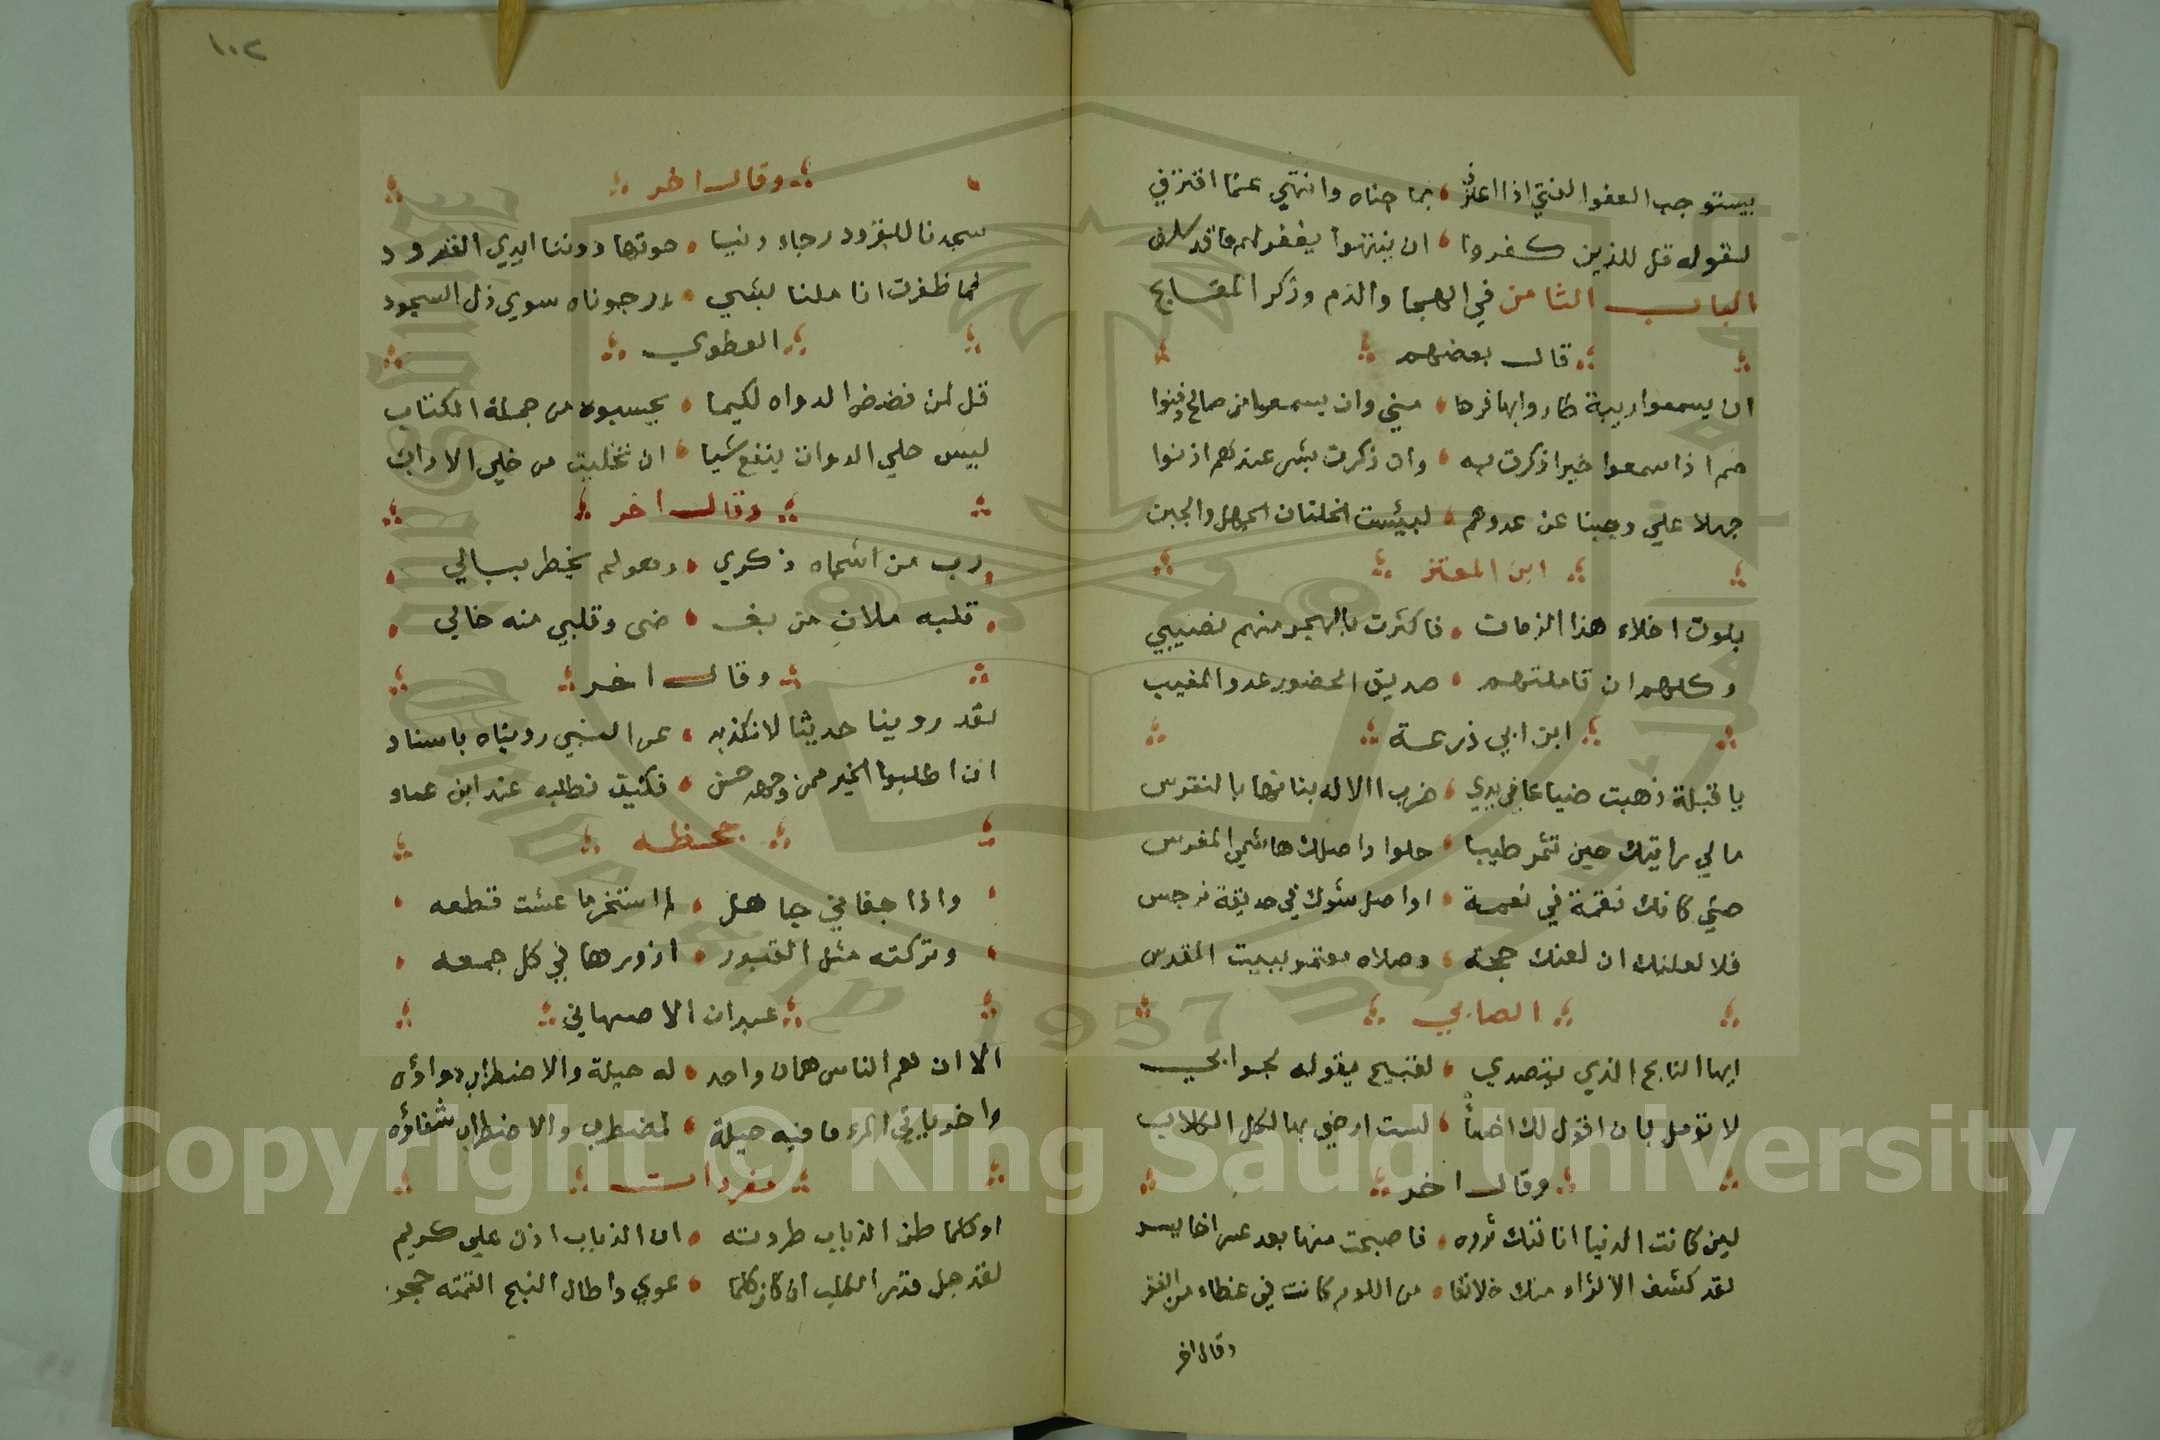 يستوجب العفو الفتي اذا اعترف ، بما جناه وانتهي عما اقترف
لقوله قل للذين كفروا ، ان ينتهوا يغفر لهم ما قد سلف
الباب الثامن في الهجا والذم وذكر المقابح
قال بعضهم
ان يسمعوا ريبة طاروا بها فرحا ، مني وان يسمعوا من صالح دفنوا
صم اذا سمعوا خيرا ذكرت به ، وان ذكرت بشر عندهم اذنوا
جهلا علي وجبنا عن عدوهم ، لبيئست الخلتان الجهل والجبن
ابن المعتز
بلوت اخلاء هذا الزمان ، فاكثرت بالهجر منهم نصيبي
وكلهم ان تاملتهم ، صديق الحضور عدو المغيب
ابن ابي زرعة
يا قبلة ذهبت ضياعا في يدي ، ضرب الاله بنانها بالنقرس
مالي رايتك حين تثمر طيبا ، حلوا واصلك هائمي المغرس
حتي كانك نقمة في نعمة ، او اصل شوك في حديقة نرجس
فلا لعلنك ان لعنك حجة ، وصلاه معتمر ببيت المقدس
الصابي
ايها النابح الذي يتصدي ، لقبيح يقوله لجوابي
لا تومل باني اقول لك اخسأ ، لست ارضي بها لكل الكلاب
وقال اخر
لين كانت الدنيا انالتك ثروه ، فاصبحت منها بعد عسر اخا يسر
لقد كشف الاثراء منك خلائقا ، من اللوم كانت في غطاء من الفقر
وقال اخر
١٠٢
وقال اخر
سجدنا للقرود رجاء دنيا ، حوتها دوننا ايدي القرود
فما ظفرت اناملنا بشي ، رجوناه سوي ذل السجود
العطوي
قل لمن فضض الدواه لكيما ، يحسبوه من جملة الكتاب
ليس حلي الدوات ينفع شيا ، ان تخليت من حلي الاداب
وقال اخر
رب من اشجاه ذكري ، وهو لم يخطر ببالي
قلبه ملان من بغـ ، ضي وقلبي منه خالي
وقال اخر
لقد روينا حديثا لا نكذبه ، عن النبي رويناه باسناد
ان اطلبوا الخير ممن وجهه حسن ، فكيف نطلبه عند ابن عماد
جحظه
واذا جفاني جاهل ، لم استخر ما عشت قطعه
وتركته مثل القبور ، ازورها في كل جمعه
عبدان الاصبهاني
الا ان هم الناس همان واحد ، له حيلة والاضطراب دواؤه
واخر يا في المرء ما فيه حيلة ، لمضطرب والاضطراب شفاؤه
مفردات
او كلما طن الذباب طردته ، ان الذباب اذن علي كريم
لقد جل قدر الكلب ان كان كلما ، عوي واطال النبح القمته حجر
Copyright © King Saud University
King Saud University
1957